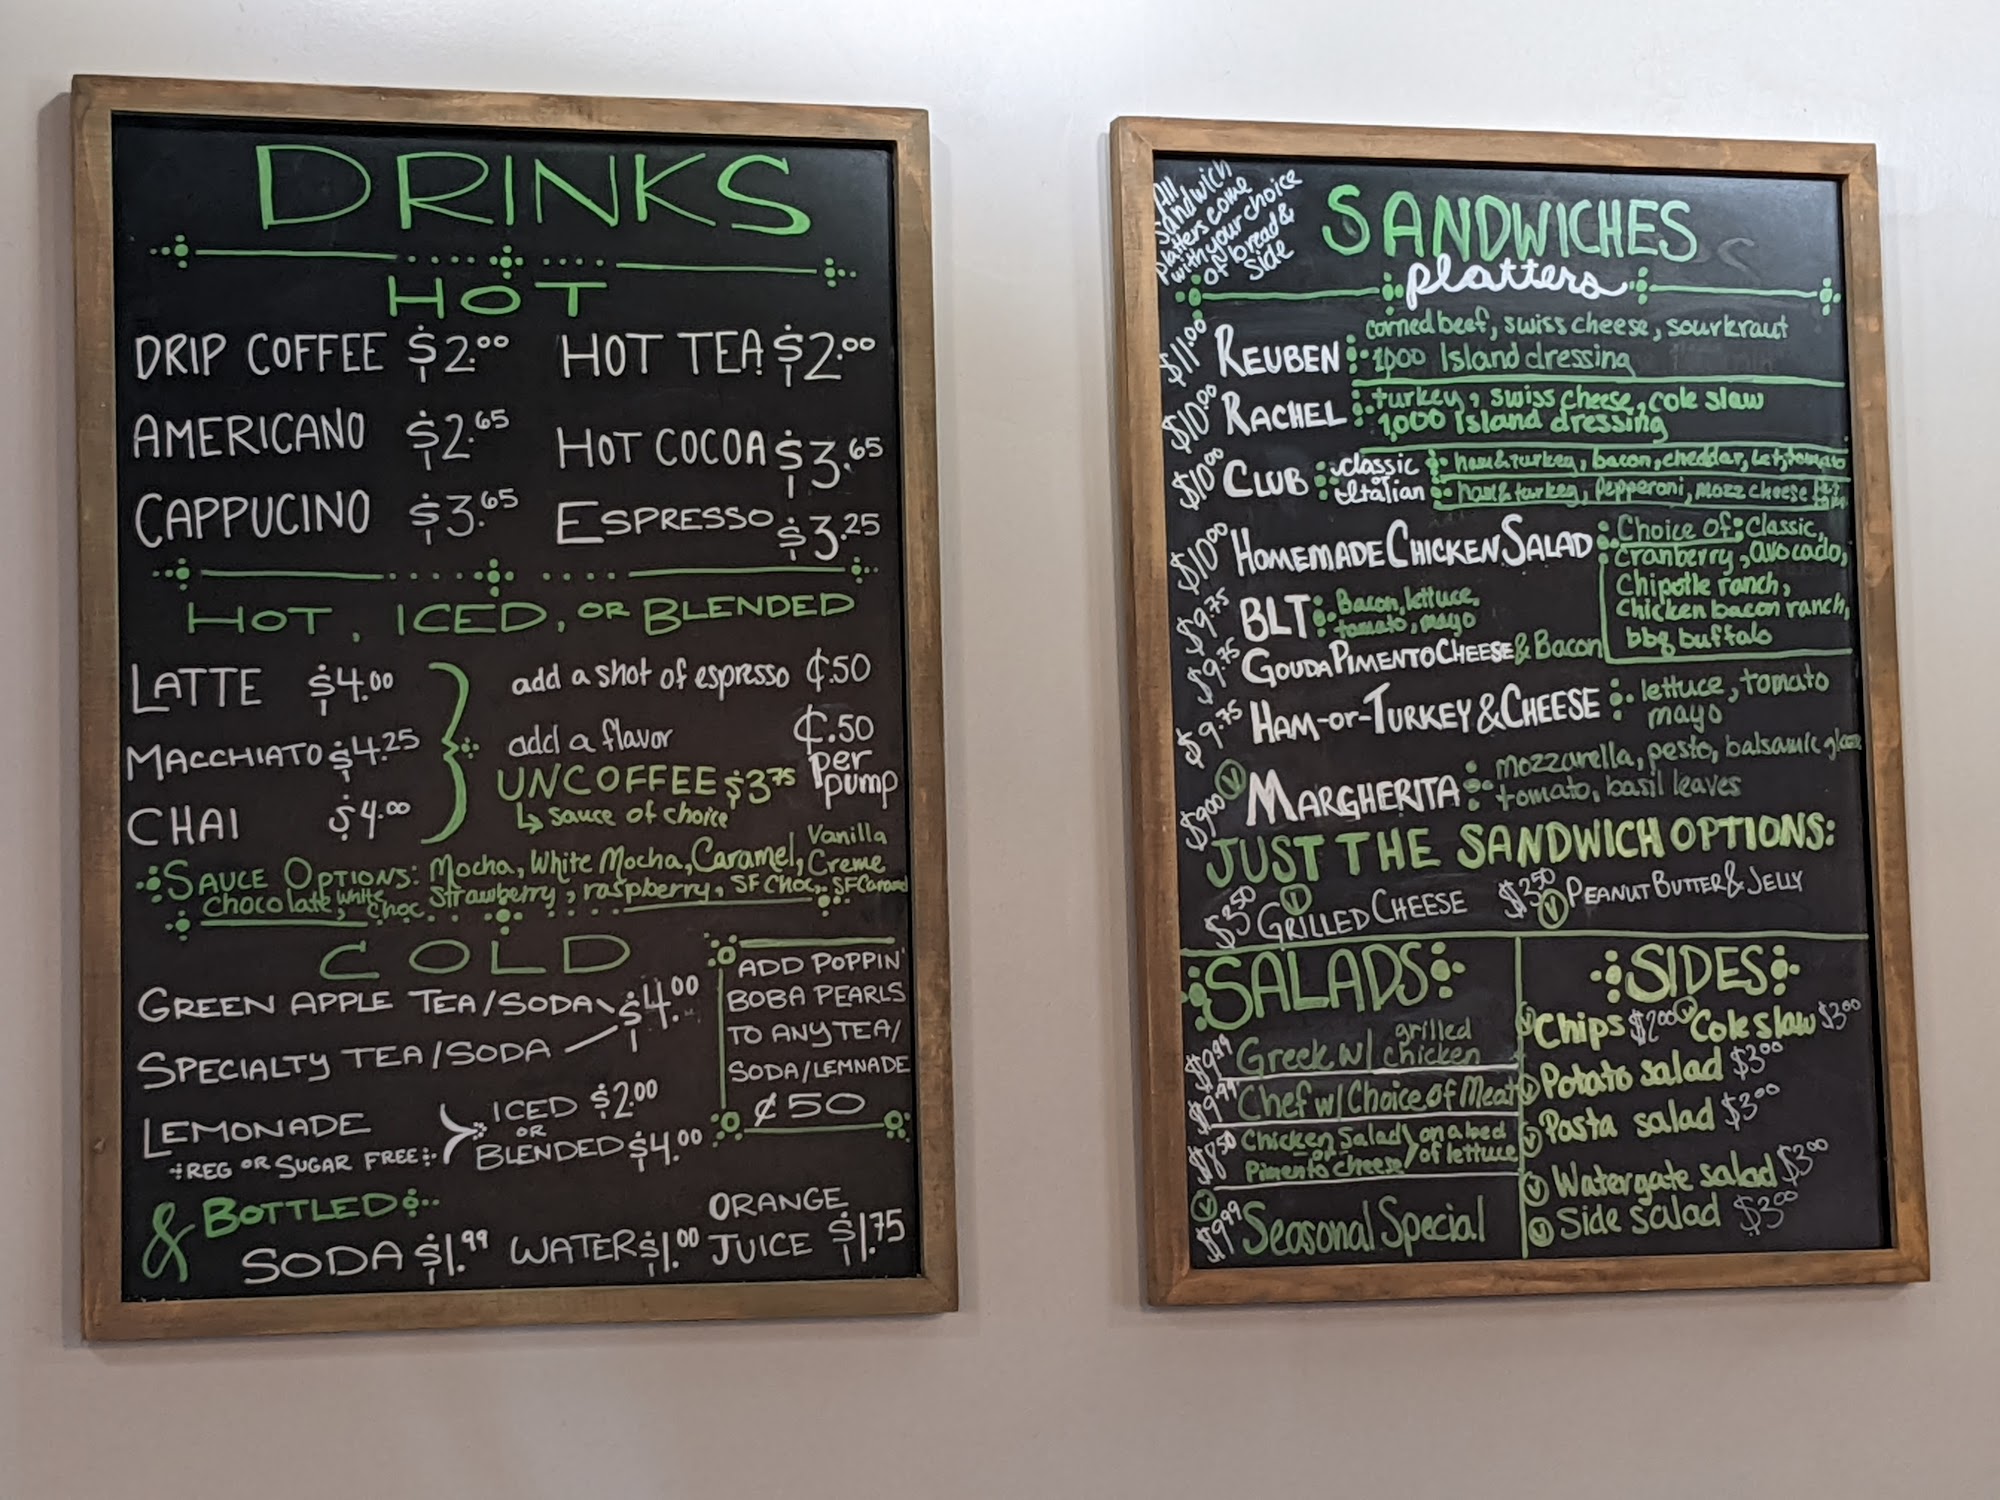 DRINKS
HOT
DRIP COFFEE $2.00
HOT TEA $2.00
AMERICANO $2.65
HOT COCOA $3.65
CAPPUCINO $3.65
ESPRESSO $3.25
HOT, ICED, OR BLENDED
LATTE $4.00
MACCHIATO $4.25
CHAI $4.00
add a shot of espresso ¢.50
add a flavor ¢.50 per pump
UNCOFFEE $3.75
↳ sauce of choice
SAUCE OPTIONS: Mocha, White Mocha, Caramel, Vanilla Creme
chocolate, white choc. strawberry, raspberry, SF Choc., SF Caramel
COLD
GREEN APPLE TEA/SODA $4.00
SPECIALTY TEA/SODA
LEMONADE
REG OR SUGAR FREE
ICED $2.00
OR
BLENDED $4.00
ADD POPPIN'
BOBA PEARLS
TO ANY TEA/
SODA/LEMNADE
¢50
& BOTTLED
SODA $1.99 WATER $1.00 ORANGE JUICE $1.75
All
Sandwich
platters come
with your choice
of bread &
side
SANDWICHES
platters
$11.00 REUBEN corned beef, swiss cheese, sourkraut
1,000 Island dressing
$10.00 RACHEL turkey, swiss cheese, cole slaw
1,000 Island dressing
$10.00 CLUB classic ham & turkey, bacon, cheddar, let, tomato
or
Italian ham & turkey, Pepperoni, mozz cheese
$10.00 HOMEMADE CHICKEN SALAD Choice of: Classic,
cranberry, avocado,
Chipotle ranch,
chicken bacon ranch,
bbq buffalo
$9.75 BLT Bacon, lettuce,
tomato, mayo
$9.75 GOUDA PIMENTO CHEESE & Bacon
$9.75 HAM-OR-TURKEY & CHEESE lettuce, tomato
mayo
$9.00 V MARGHERITA mozzarella, pesto, balsamic glaze
tomato, basil leaves
JUST THE SANDWICH OPTIONS:
$3.50 V GRILLED CHEESE $3.50 V PEANUT BUTTER & JELLY
SALADS
$9.99 Greek w/ grilled chicken
$9.99 Chef w/ Choice of Meat
$8.50 Chicken Salad
or
Pimento cheese
on a bed
of lettuce
V $9.99 Seasonal Special
SIDES
V Chips $2.00 V Cole slaw $3.00
V Potato salad $3.00
V Pasta salad $3.00
V Watergate salad $3.00
V Side salad $3.00